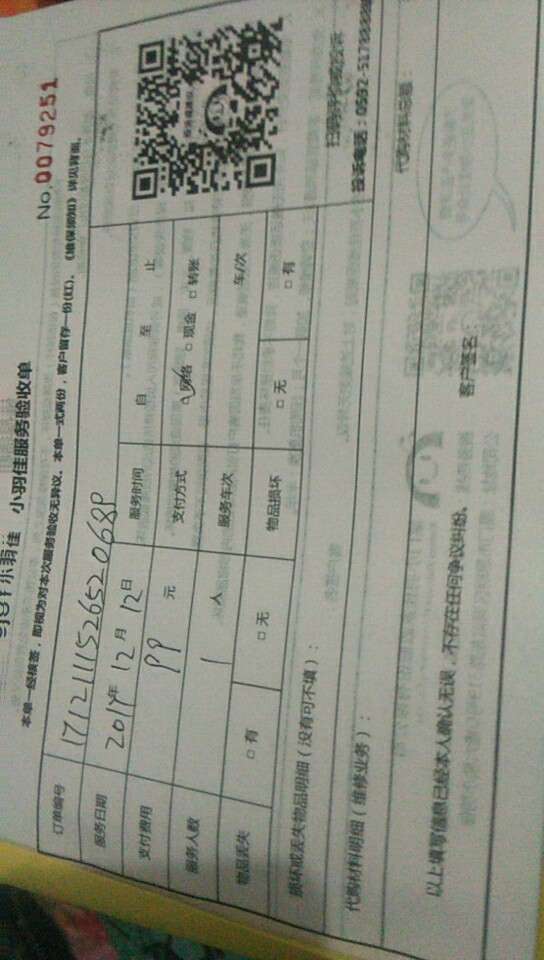 小羽佳 小羽佳服务验收单
No.0079251
本单一经核签，即视为对本次服务验收无异议。本单一式两份，客户留存一份(红)。《维保须知》详见背面。
订单编号 171211152652068P
服务日期 2017年 12月 12日 服务时间 自 至 止
支付费用 PP 元 支付方式 □网络 □现金 □转账
服务人数 1 人 服务车次 车/次
物品丢失 □有 □无 物品损坏 □无 □有
损坏或丢失物品明细（没有可不填）：
代购材料明细（维修业务）： 代购材料总额：
以上填写信息已经本人确认无误，不存在任何争议纠纷。 客户签名：
投诉电话：0592-5178888